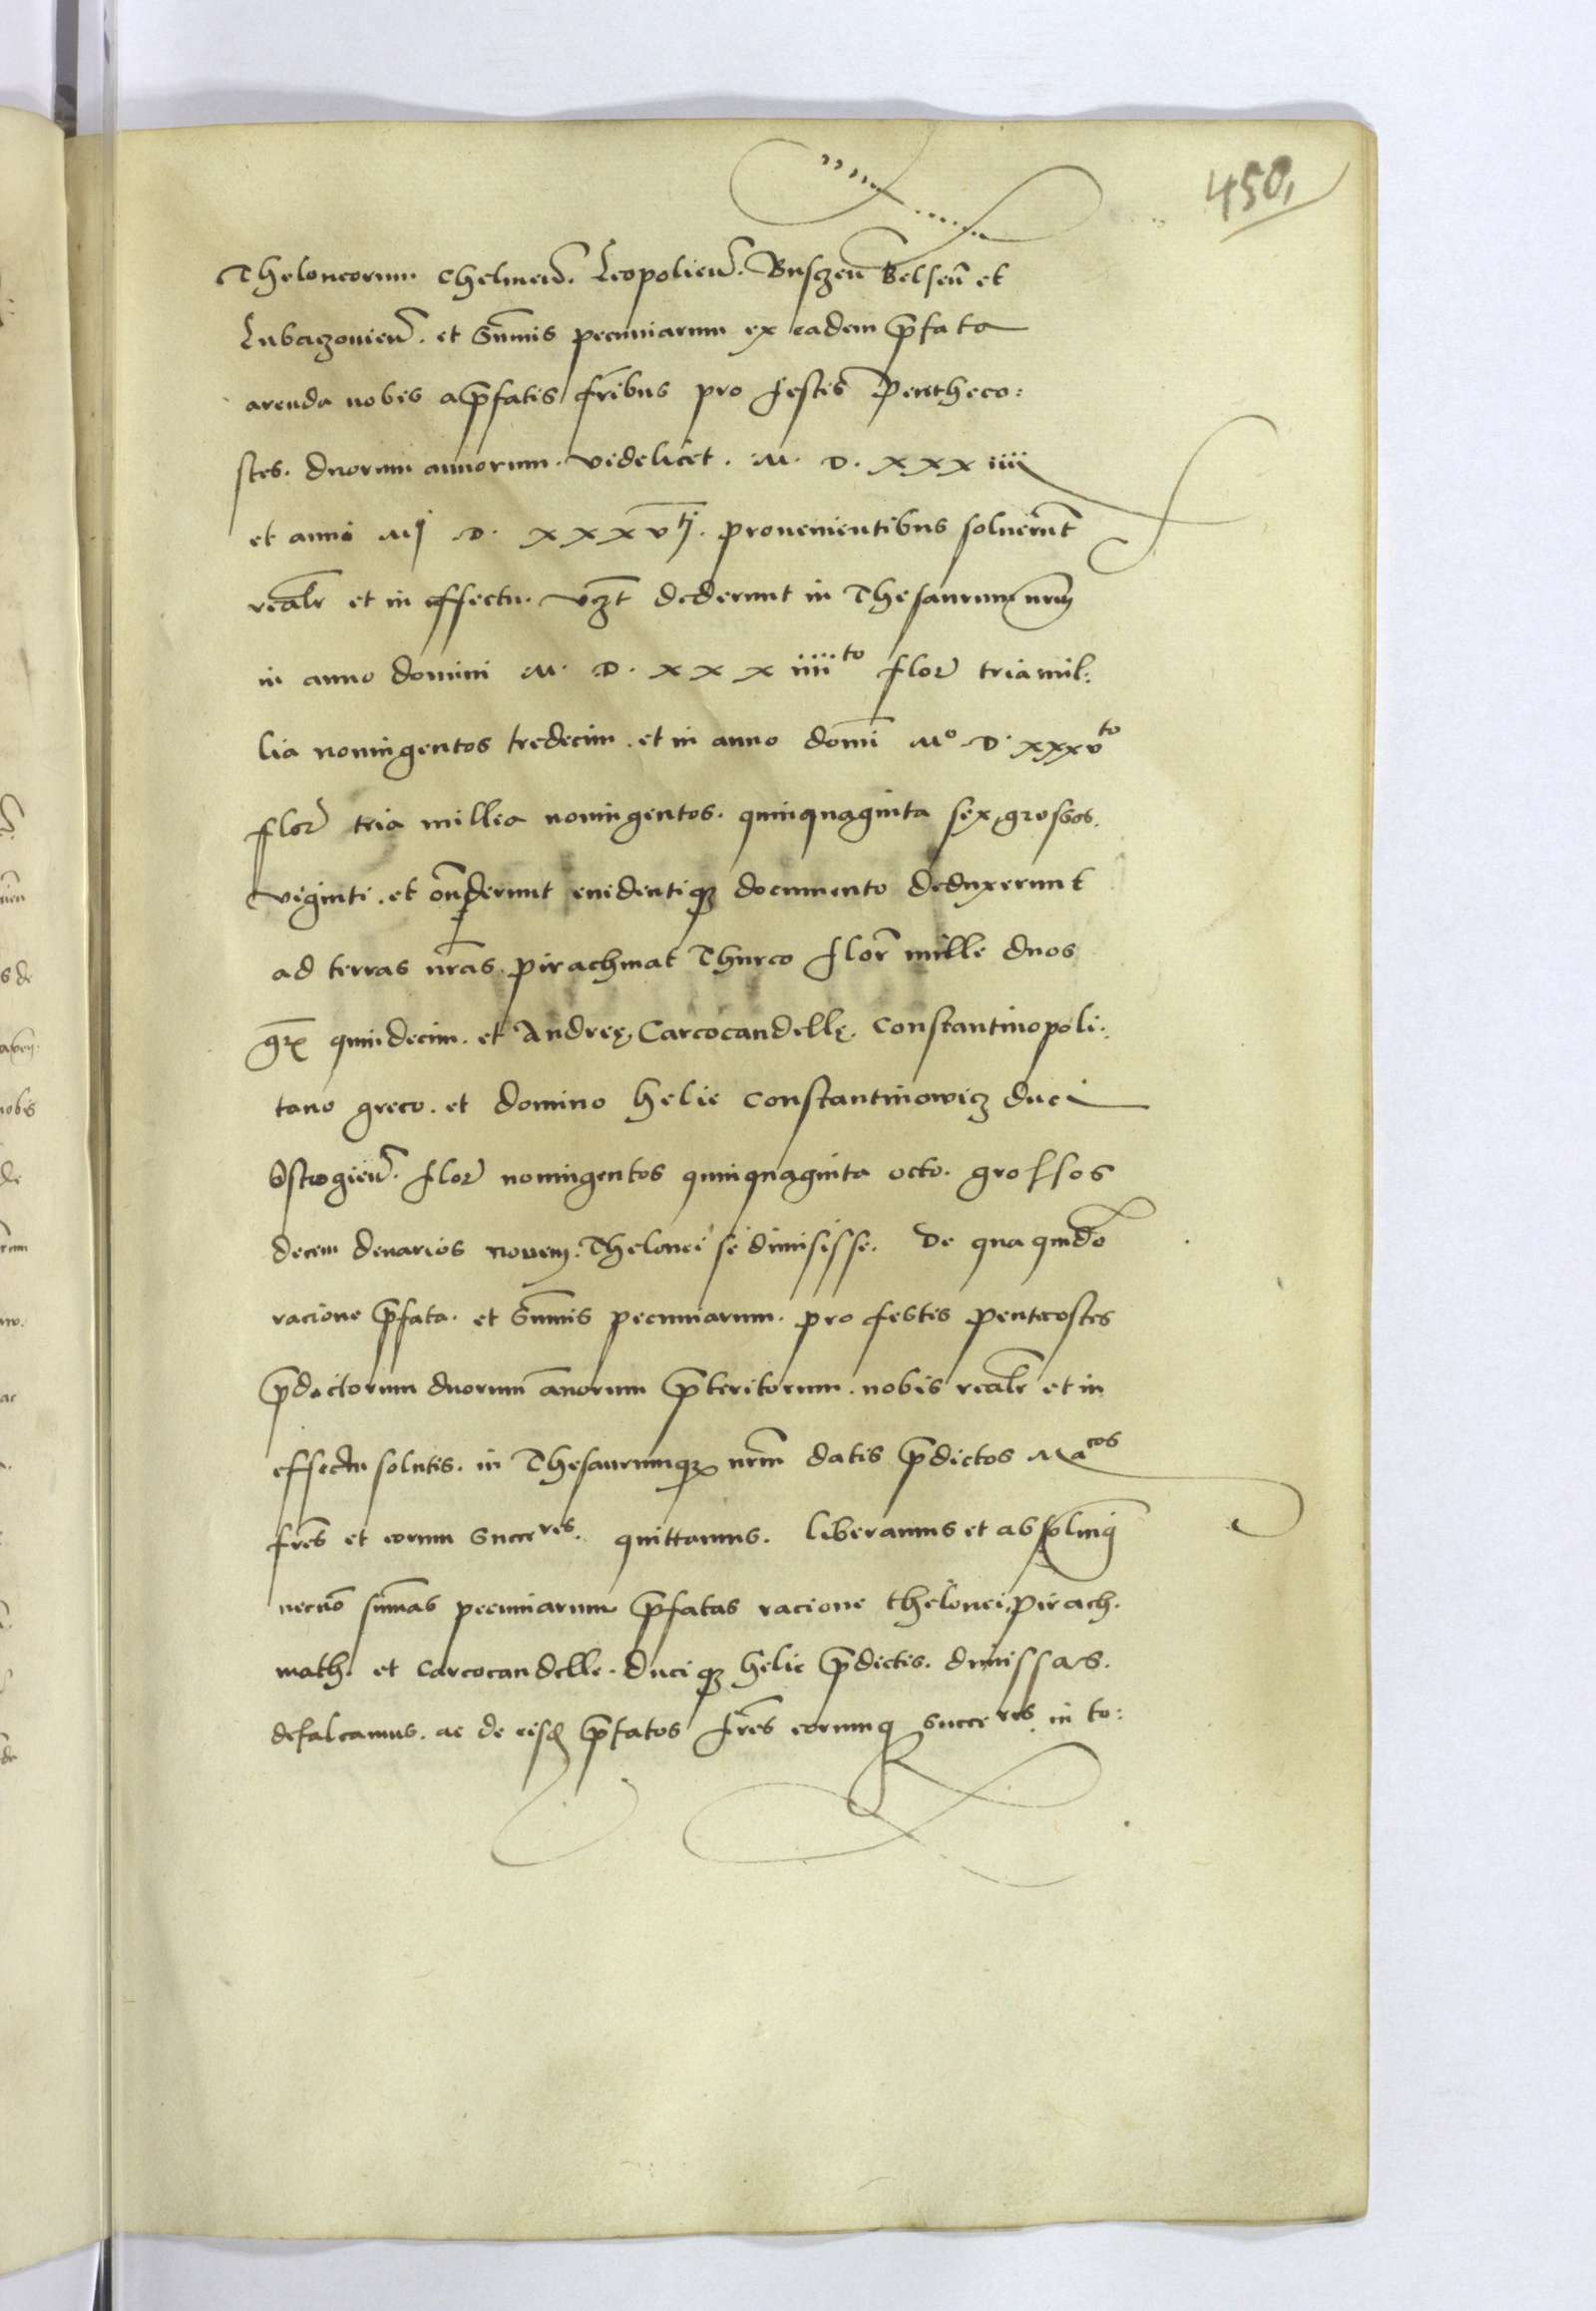 450,
Theloneorum. Chelmen̄. Leopolien̄. Busczen̄ Belsen̄ et
Lubaczouien̄. et Sum̄is pecuniarum ex eadem p̄fata
arenda nobis a p̄fatis fr̄ibus pro festis Pentheco:
stes. duorum annorum. videlicet. M. D. xxx iiii
et anni Mj D. xxxvtj. prouenientibus soluerūt
realr̄ et in effectu. vcz̄t dederunt in Thesaurum nrm̄
in anno domini M. D. x x x iiiito flor̄ tria mil:
lia noningentos tredecim. et in anno domi̅ Mo D. xxxvto
flor̄ tria millia noningentos. quinquaginta sex, grossos.
viginti. et on̄derunt euidentiqꝫ documento deduxerunt
ad terras nr̄as. pirachmat Thurco flor̄ mille duos
gr̄ quindecim. et Andreę, Carcocandellę. Constantinopoli:
tano greco. et domino helie Constantinowicz duci
Ostrogien̄. flor̄ noningentos quinquaginta octo. grossos
decem denarios novem. Thelonei se dimisisse. De qua quidē
racione p̄fata. et Sum̄is pecuniarum. pro festis pentecostes
p̄dictorum duorum an̄orum p̄teritorum. nobis realr̄ et in
effectu solutis. in Thesaurumqꝫ nrm̄ datis p̄dictos Macos
fr̄es et eorum Succeres. quittamus. liberamus et absoluimꝰ
necnō sum̄as pecuniarum p̄fatas racione thelonei, pirach.
math. et Carcocandelle. duciqꝫ helie p̄dictis. dimissas.
defalcamus. ac de eisd̄ p̄fatos fr̄es eorumqꝫ succeres in to: